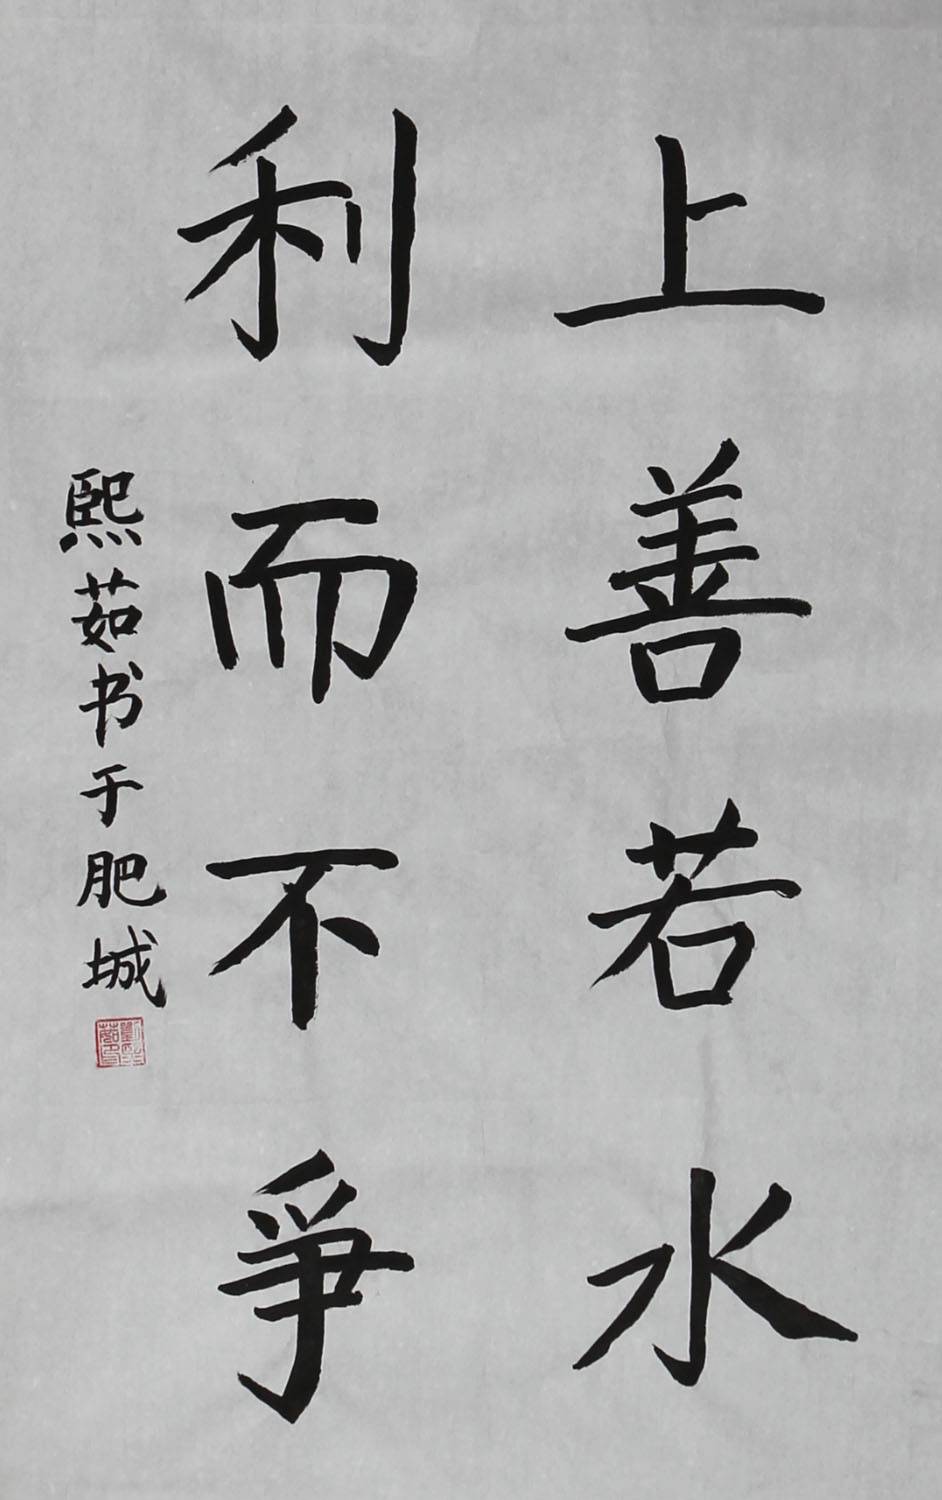 上善若水
利而不爭
熙茹书于肥城